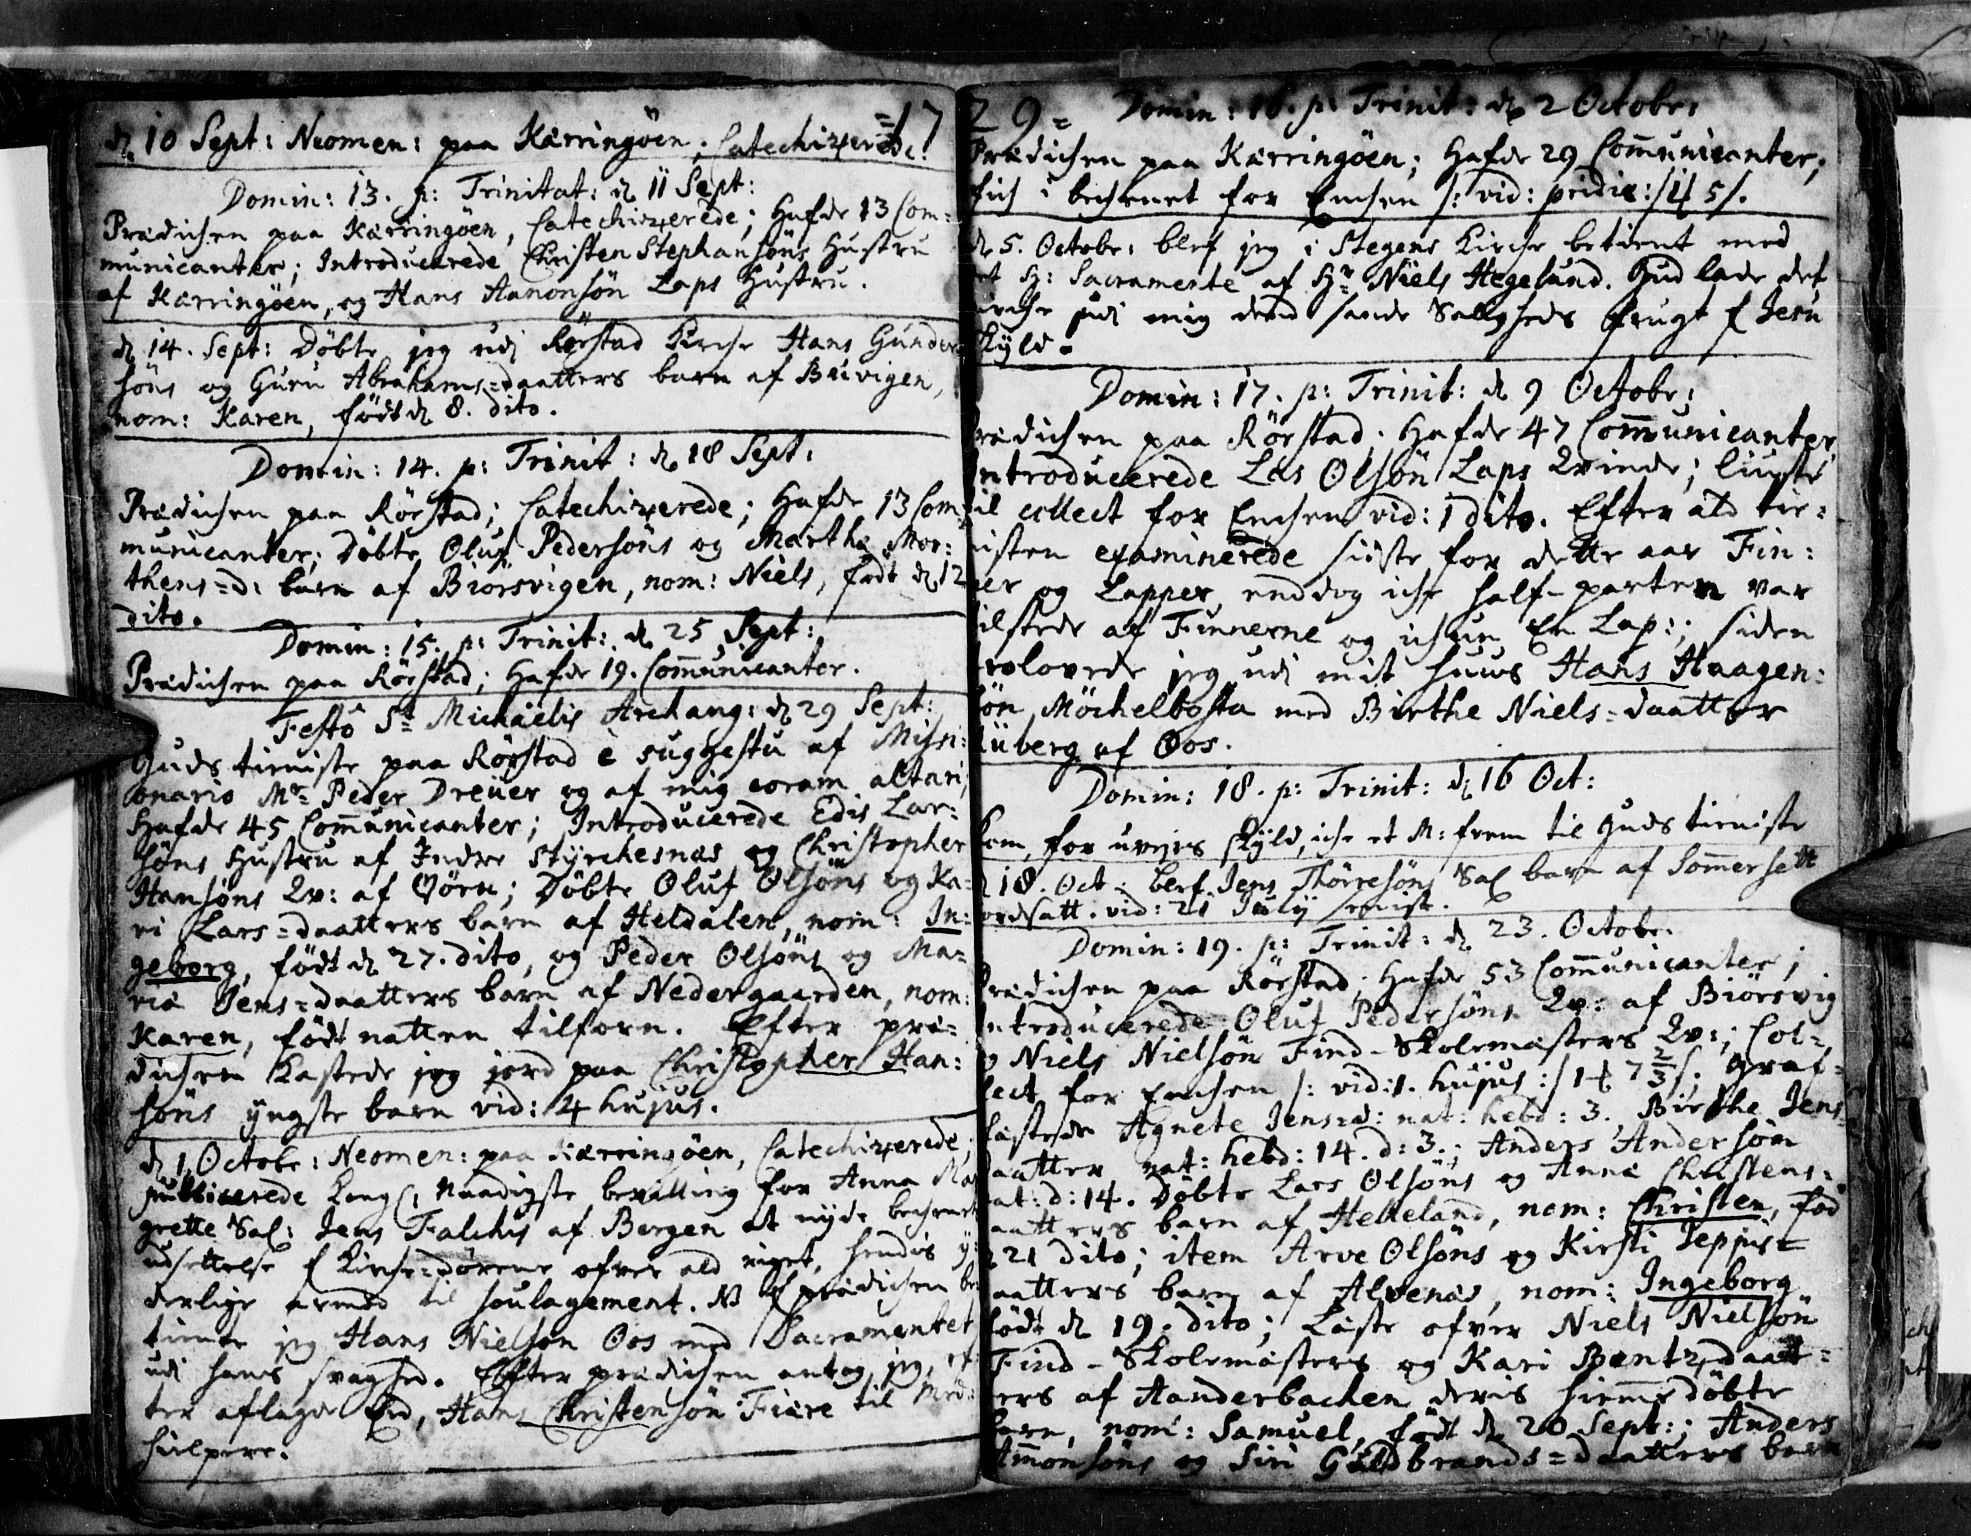 =17
d. 10 Sept: Neomen: paa Kærringöen, Catechizerede.
Domin: 13. p: Trinitat: d. 11 Sept:
Prædichen paa Kærringöen, Catechizerede; Hafde 13 Com=
municanter; Introducerede Christen Stephansöns Hustru
af Kærringöen, og Hans Aanonsön Laps Hustru.
d. 14. Sept: Döbte jeg udj Rörstad Kirche Hans Gunder
söns og Guru Abrahams=daatters barn af Bruvigen,
nom: Karen, födt d. 8. dito.
Domin: 14. p: Trinit: d. 18 Sept:
Prædichen paa Rörstad; Catechizerede; Hafde 13 Com=
municanter; Döbte Oluf Pedersöns og Martha Mor:
thens=d: barn af Biörsvigen, nom: Niels, födt d. 12
dito.
Domin: 15. p: Trinit: d. 25 Sept:
Prædichen paa Rörstad; Hafde 19. Communicanter.
Festô St Michaelis Archang: d. 29 Sept:
Guds tieniste paa Rörstad è suggestu af Missi=
onario Mr: Peder Dreüer og af mig coram altari;
Hafde 45 Communicanter; Introducerede Edis Lar=
söns Hustru af Indre Styrchesnæs og Christopher
Hansöns Qv: af Ørn; Döbte Oluf Olsöns og Ka=
ri Lars=daatters barn af Heldalen, nom: In=
geborg, födt d. 27. dito, og Peder Olsöns og Ma=
ria Jens=daatters barn af Nedergaarden, nom:
Karen, födt natten tilforn. Efter præ=
dichen kastede jeg jord paa Christopher Han:
söns yngste barn vid: 4 hujus.
d. 1 Octobr: Neomen: paa Kærringöen, Catechizerede;
publicerede Kongl: Naadigste bevilling for Anna Mar
grette Sal: Jens Falchis af Bergen at nyde bechenet
udsettelse f Kirche=dörene ofver ald riget, hendis y=
derlige armod til soulagement. NB f prædichen be
tiente jeg Hans Nielsön Oos med Sacramentet
udi hans svaghed. Efter prædichen antog jeg, ef
ter aflagde Eed, Hans Christensön Fiære til Med=
hielpere.
29= Domin: 16. p: Trinit: d. 2 Octobr:
Prædichen paa Kærringöen; Hafde 29 Communicanter;
fich i bechenet for Enchen /: vid: pridie:/ 5 /.
d. 5. Octobr: blef jeg i Stegens Kirche betient med
et H: Sacramente af Hr Niels Hegelund. Gud lade det
virche udi mig dend sande Saligheds frugt f Jesu
skyld.
Domin: 17. p: Trinit: d. 9 Octobr:
Prædichen paa Rörstad. Hafde 47 Communicanter
Introducerede Las Olsön Laps Qvinde; liuste
til collect for Enchen vid: 1 dito. Efter ald tie=
nisten examinerede sidste for dette aar Fin:
ner og Lapper, enddog iche half-parten var
tilstede af Finnerne og ichun En Lap:; siden
trolovede jeg udi mit huus Hans Haagen:
sön Möchelbosta med Birthe Niels=daatter
Küberg af Oos.
Domin: 18. p: Trinit: d. 16 Oct:
kom, for uveirs skyld, iche et M: frem til Guds tieniste
d 18. Oct: blef Jens Thörresöns Sal barn af Sommersett
jordsatt. vid: 21 July
Domin: 19. p: Trinit: d. 23. Octobr:
Prædichen paa Rörstad; Hafde 53 Communicanter;
Introducerede Oluf Pedersöns Qv: af Biörsvig
og Niels Nielsön Find-Skolemesters Qv:; Col=
lect for Enchen /: vid: 1. hujus :/ 1 7 2/3 /. Graf=
fæstede Agnete Jens=d: nat: hebd: 3., Birthe Jens
daatter nat: hebd: 14. d: 3.; Anders Andersön
nat: d: 14. Döbte Lars Olsöns og Anna Christens=
daatters barn af Helleland, nom: Christen, föd
d. 21 dito; item Arve Olsöns og Kirsti Jeppis=
daatters barn af Alvenæs, nom: Ingeborg
födt d. 19. dito; Læste ofver Niels Nielsön
Find-Skolemesters og Kari Bentz=daat=
ters af Aanderbachen deris hiemmedöbte
barn, nom: Samuel, födt d. 20 Sept:; Anders
Ammonsöns og Siri Guldbrands=daatters barn